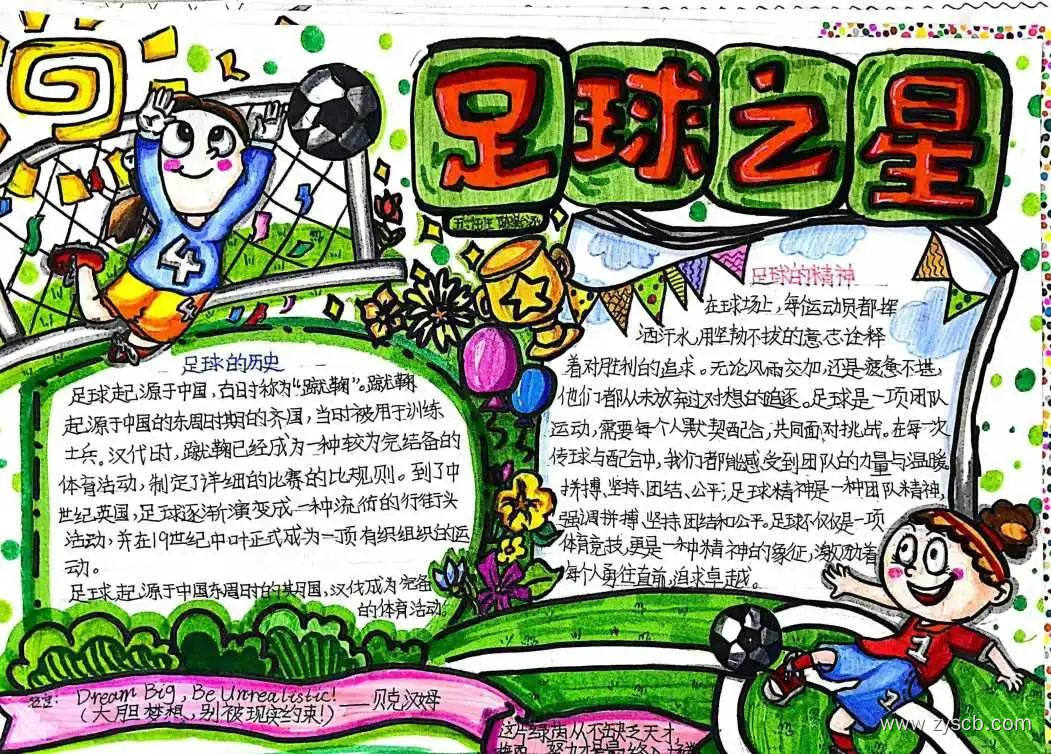 足球之星
4
足球的历史
足球起源于中国，古时称为“蹴鞠”。蹴鞠
起源于中国的东周时期的齐国，当时被用于训练
士兵。汉代时，蹴鞠已经成为一种较为完结备的
体育活动，制定了详细的比赛的比规则。到了中
世纪英国，足球逐渐演变成一种流行的行街头
活动，并在19世纪中叶正式成为一项有织组织的运
动。
足球起源于中国东周时的其月国，汉代成为完备
的体育活动。
足球的精神
在球场上，每位运动员都挥
洒汗水，用坚韧不拔的意志诠释
着对胜利的追求。无论风雨交加，还是疲惫不堪，
他们都从未放弃过对想的追逐。足球是一项团队
运动，需要每个人默契配合，共同面对挑战。在每一次
传球与配合中，我们都能感受到团队的力量与温暖。
拼搏、坚持、团结、公平；足球精神是一种团队精神，
强调拼搏、坚持、团结和公平。足球不仅仅是一项
体育竞技，更是一种精神的象征，激励着
每个人勇往直前，追求卓越。
Dream Big, Be Unrealistic!
（大胆梦想，别被现实约束！）——贝克汉姆
这片绿茵从不缺乏天才，
努力才是最终入
1
www.zyscb.com